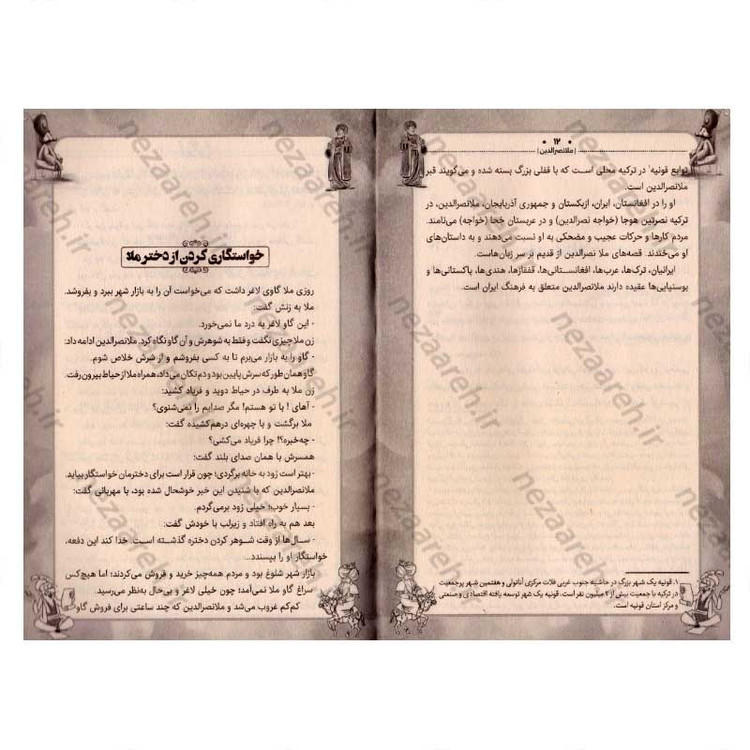 ۱۲
ملانصرالدین
توابع قونیه۱ در ترکیه محلی است که با قفلی بزرگ بسته شده و می‌گویند قبر
ملانصرالدین است.
او را در افغانستان، ایران، ازبکستان و جمهوری آذربایجان، ملانصرالدین، در
ترکیه نصرتین هوجا (خواجه نصرالدین) و در عربستان جُحا (خواجه) می‌نامند.
مردم کارها و حرکات عجیب و مضحکی به او نسبت می‌دهند و به داستان‌های
او می‌خندند. قصه‌های ملا نصرالدین از قدیم بر سر زبان‌هاست.
ایرانیان، ترک‌ها، عرب‌ها، افغانستانی‌ها، قفقازها، هندی‌ها، پاکستانی‌ها و
بوسنیایی‌ها عقیده دارند ملانصرالدین متعلق به فرهنگ ایران است.
۱. قونیه یک شهر بزرگ در حاشیه جنوب غربی فلات مرکزی آناتولی و هفتمین شهر پرجمعیت
در ترکیه با جمعیت بیش از ۲ میلیون نفر است. قونیه یک شهر توسعه یافته اقتصادی و صنعتی
و مرکز استان قونیه است.
خواستگاری کردن از دختر ملا
روزی ملا گاوی لاغر داشت که می‌خواست آن را به بازار شهر ببرد و بفروشد.
ملا به زنش گفت:
- این گاو لاغر به درد ما نمی‌خورد.
زن ملا چیزی نگفت و فقط به شوهرش و آن گاو نگاه کرد. ملانصرالدین ادامه داد:
- گاو را به بازار می‌برم تا به کسی بفروشم و از شرش خلاص شوم.
گاو همان طور که سرش پایین بود و دم تکان می‌داد، همراه ملا از حیاط بیرون رفت.
زن ملا به طرف در حیاط دوید و فریاد کشید:
- آهای ! با تو هستم! مگر صدایم را نمی‌شنوی؟
ملا برگشت و با چهره‌ای درهم‌کشیده گفت:
- چه‌خبره؟! چرا فریاد می‌کشی؟
همسرش با همان صدای بلند گفت:
- بهتر است زود به خانه برگردی؛ چون قرار است برای دخترمان خواستگار بیاید.
ملانصرالدین که با شنیدن این خبر خوشحال شده بود، با مهربانی گفت:
- بسیار خوب؛ خیلی زود برمی‌گردم.
بعد هم به راه افتاد و زیرلب با خودش گفت:
- سال‌ها از وقت شوهر کردن دختره گذشته است. خدا کند این دفعه،
خواستگار او را بپسندد...
بازار شهر شلوغ بود و مردم همه‌چیز خرید و فروش می‌کردند؛ اما هیچ‌کس
سراغ گاو ملا نمی‌آمد؛ چون خیلی لاغر و بی‌حال به‌نظر می‌رسید.
کم‌کم غروب می‌شد و ملانصرالدین که چند ساعتی برای فروش گاو
nezaareh.ir